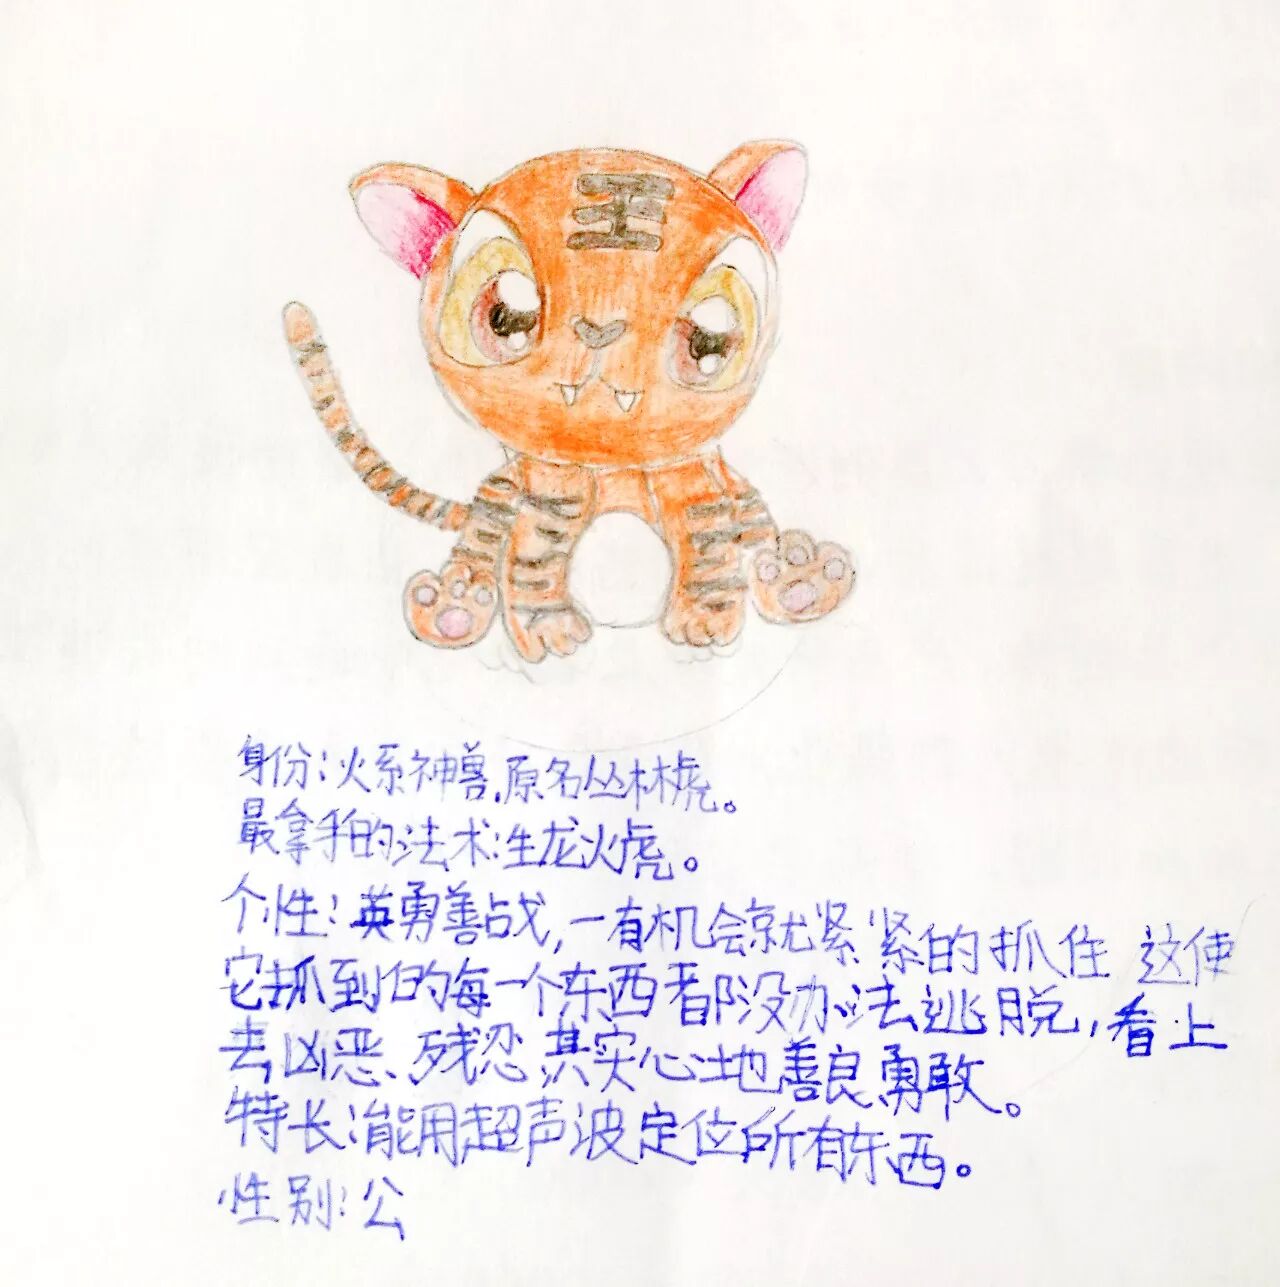 王
身份:火系神兽,原名丛林虎。
最拿手的法术:生龙火虎。
个性:英勇善战,一有机会就紧紧的抓住 这使
它抓到的每一个东西都没办法逃脱,看上
去凶恶、残忍,其实心地善良勇敢。
特长:能用超声波定位所有东西。
性别:公